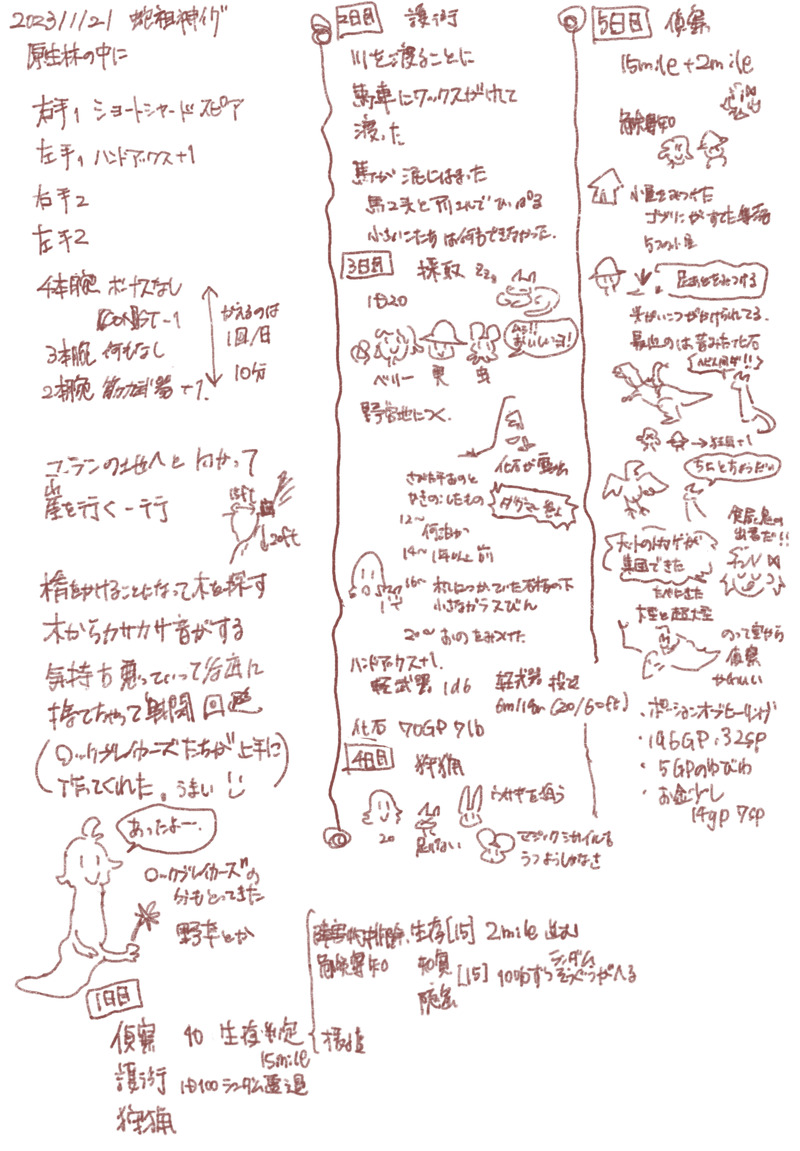 2023/1/21 蛇祖神イグ
原生林の中に
右手1 ショートシャードスピア
左手1 ハンドアックス+1
右手2
左手2
4本腕 ボーナスなし
CONST-1
3本腕 何もなし
2本腕 筋力武器で+1.
かえるのは
1回/日
10分
コランの地へと向かって
崖を行く一行
15ft
120ft
橋をかけることになって木を探す
木からカサカサ音がする
気持ち悪っていって谷底に
捨てちゃって戦闘回避
(ロックブレイカーズたちが上手に
作ってくれた。うまい)
あったよー.
ロックブレイカーズの
分もとってきた
野草とか
1日目
偵察 40 生存判定
15mile
護衛 1d100ランダム遭遇
狩猟
生存[15] 2mile 進む
危険察知 知覚
[15] 10%ずつランダム
そうぐうがへる
2日目 護衛
川を渡ることに
馬車にワックスがけして
渡った
馬が泥にはまった
馬2头と
小さいこたちは何もできなかった.
3日目 採取 zzz
1d20
ムシ!!
おいしいヨ!
ベリー 虫
野営地につく.
化石が露出
12〜 何泊か
14〜 1年以上前
16〜
小さなガラスびん
20〜 おのをみつけた
ハンドアックス+1.
軽武器 1d6 軽武器 投てき
6m/18m (20/60ft)
化石 70GP 7lb
4日目 狩猟
ウサギを狙う
20 足りない
マジックミサイルも
うつようしかなさ
5日目 偵察
15mile +2mile
危険察知
小屋をみつけた
ゴブリンがすてた集落
5つの小屋
足あとをみつける
最近のは苔みた化石
ヘビ人間ダ!!
→狂気+1
ちょっとちょうだい
食屍鬼の
出番だ!!
ペットのトカゲが
集団できた
たべにきた
大型と超大型
のって空から
偵察
かわいい
・ポーションオブヒーリング
・196GP、32sp
・5GPのゆびわ
・お金少し
14gp 7sp